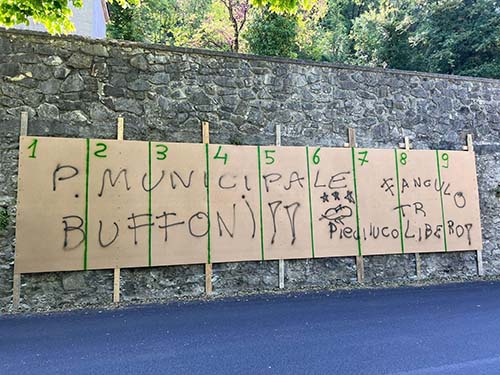 1 2 3 4 5 6 7 8 9
P. MUNICIPALE
BUFFONI !!!
ANGULO
TR
PIEDILUCO LIBERO!